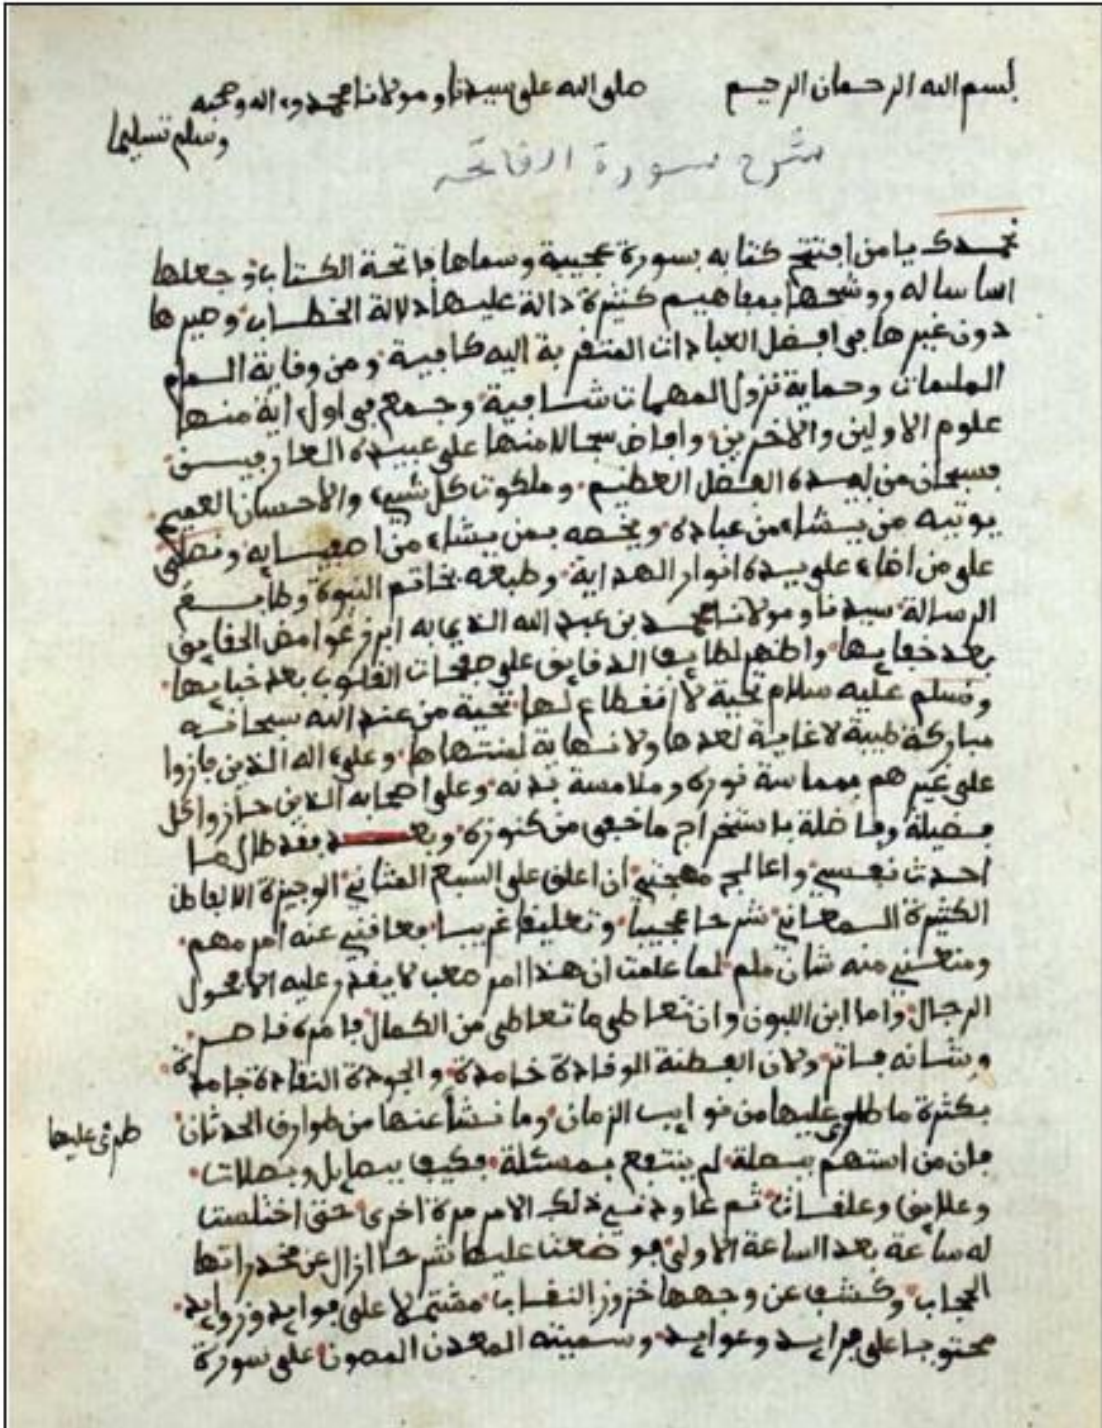 بسم الله الرحمان الرحيم صلى الله على سيدنا ومولانا محمد وءاله وصحبه
وسلم تسليما
شرح سورة الفاتحة
نحمدك يا من افتتح كتابه بسورة عجيبة وسماها فاتحة الكتاب وجعلها
اساسا له ووشحها بمفاهيم كثيرة دالة عليها دلالة الخطاب وصيرها
دون غيرها في افضل العبادات المتقربة اليه كافية ومن وقاية السهام
الملمات وحماية نزول المهمات شافية وجمع في اول ءاية منها
علوم الاولين والاخرين وافاض سجالا منها على عبيده العارفين
فسبحان من له بيده الفضل العظيم وملكوت كل شيء والاحسان العميم
يوتيه من يشاء من عباده ويخصه بمن يشاء من اصفيايه ونصلى
على من اضاء على يده انوار الهداية وطبعه بخاتم النبوة وطابع
الرسالة سيدنا ومولانا محمد بن عبد الله الذي به ابرز غوامض الحقايق
بعد خفايها واظهر لطايف الدقايق على صفحات القلوب بعد خبايها
ونسلم عليه سلام تحية لا انقطاع لها تحية من عند الله سبحانه
مباركة طيبة لا غاية لعدها ولا نهاية لمنتهاها وعلى ءاله الذين فازوا
على غيرهم بمماسة نوره وملامسة بدنه وعلى اصحابه الذين حازوا كل
فضيلة وفاضلة باستخراج ما خفى من كنوزه وبعد فقد طال ما
احدث نفسي واعالج مهجتي ان اعلق على السبع المثاني الوجيزة الالفاظ
الكثيرة المعاني شرحا عجيبا وتعليقا غريبا فعاقني عنه امر مهم
ومنعني منه شان ملم لما علمت ان هذا امر صعب لا يقدر عليه الا فحول
الرجال واما ابن اللبون وان تعاطى ما تعاطى من الكمال فامره قاصر
وشانه فاتر ولان الفطنة الوقادة خامدة والجودة النقادة جامدة
بكثرة ما طرى عليها من نوايب الزمان وما نشا عنها من طوارق الحدثان
طرى عليها
فان من استهم ببصلة لم ينتفع بمسئلة فكيف ببصايل وبصلات
وعلايق وعلقات ثم عاودني ذلك الامر مرة اخرى حتى اختلست
له ساعة بعد الساعة الاولى فوضعت عليها شرحا ازال عن مخدراتها
الحجاب وكشف عن وجهها خزوز النقاب مشتملا على فوايد وزوايد
محتويا على فرايد وعوايد وسميته المعدن المصون على سورة